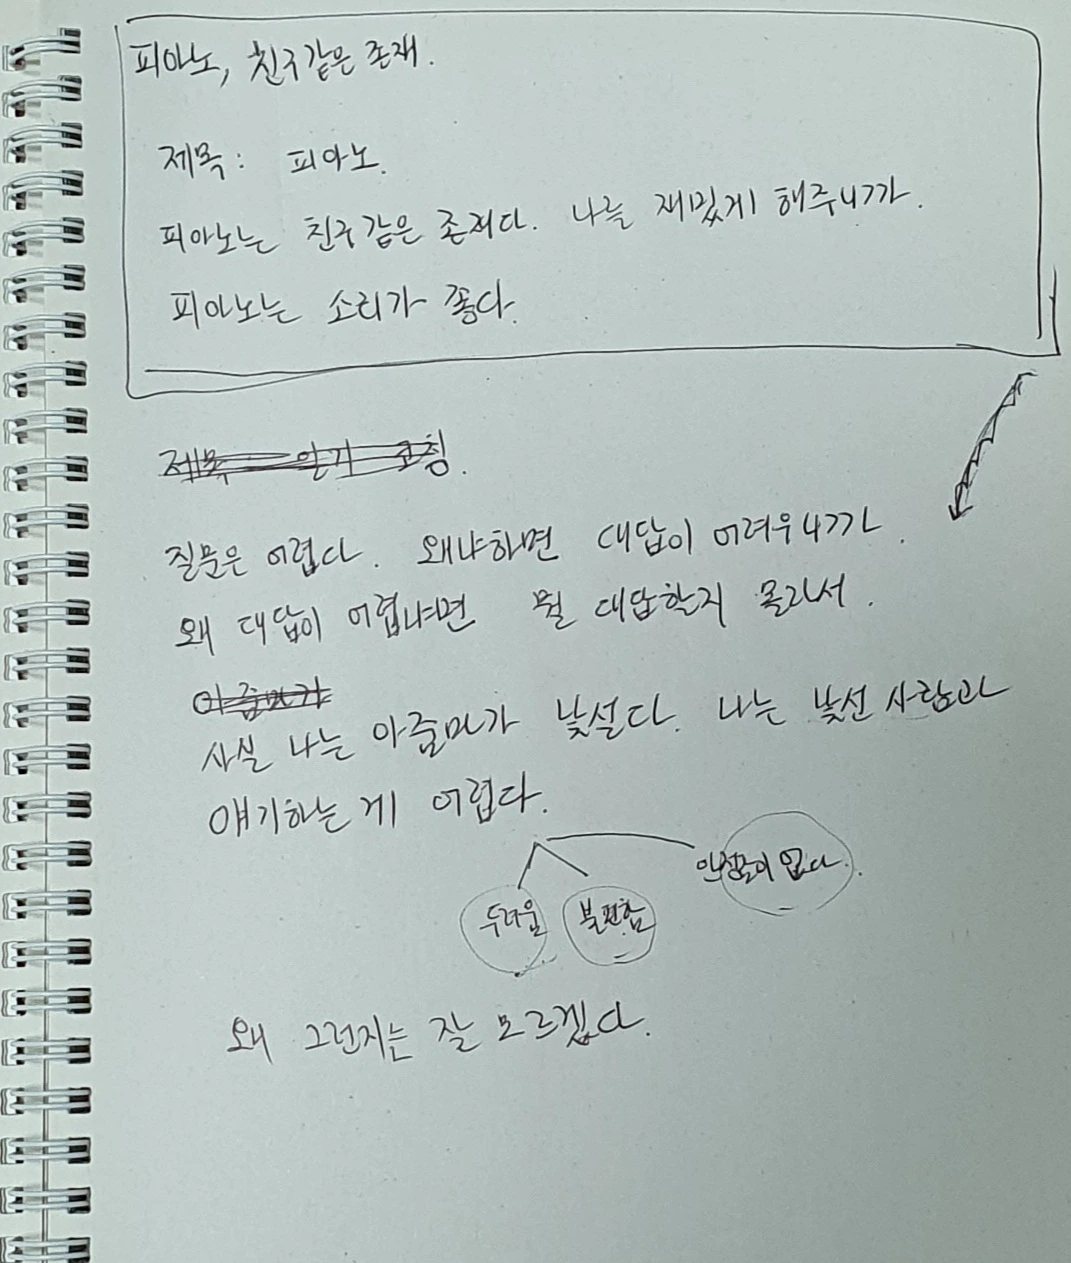 피아노, 친구같은 존재.
제목: 피아노.
피아노는 친구 같은 존재다. 나를 재밌게 해주니까.
피아노는 소리가 좋다.
제목 일기 코칭.
질문은 어렵다. 왜냐하면 대답이 어려우니까.
왜 대답이 어렵냐면 뭘 대답할지 몰라서.
아줌마가
사실 나는 아줌마가 낯설다. 나는 낯선 사람과
얘기하는 게 어렵다.
없다.
두려움 불편함
왜 그런지는 잘 모르겠다.